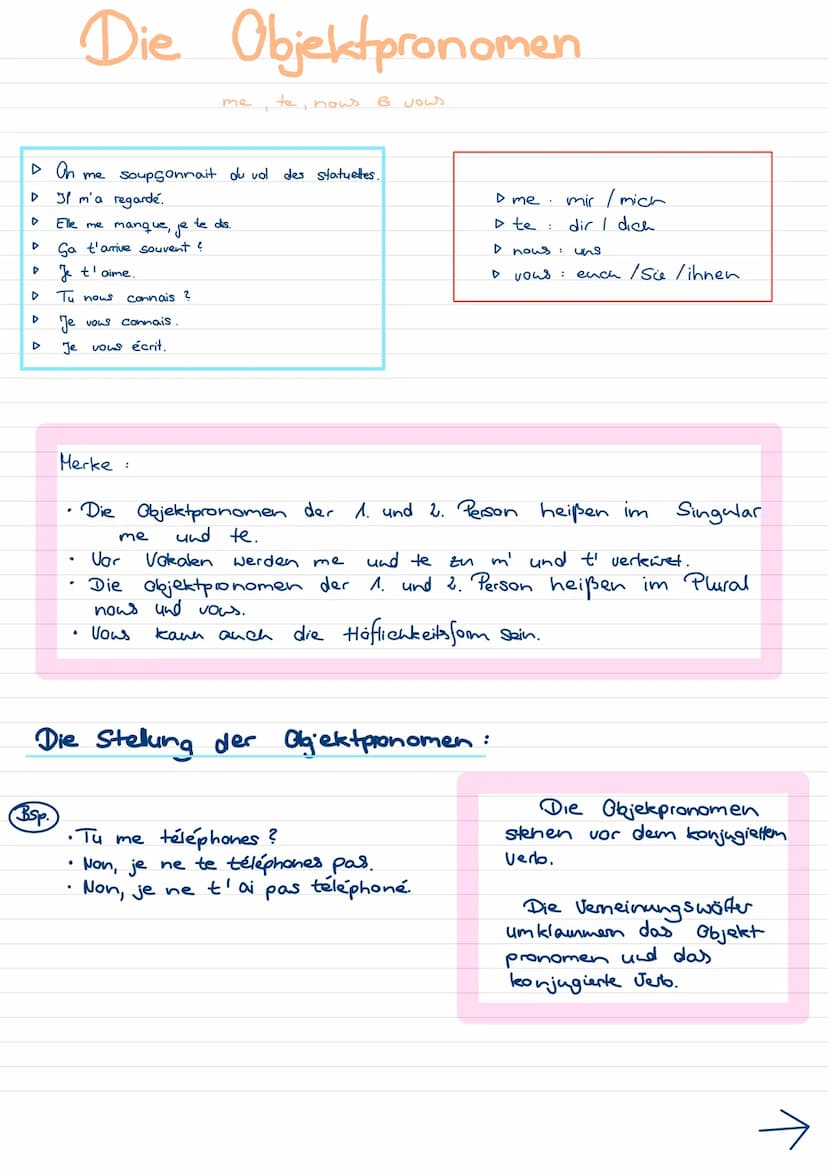 Die Objektpronomen
me, te, nous & vous
▷ On me soupçonnait du vol des statuettes.
▷ Il m'a regardé.
▷ Elle me manque, je te dis.
▷ Ça t'arrive souvent ?
▷ Je t'aime.
▷ Tu nous connais ?
▷ Je vous connais.
▷ Je vous écrit.
▷ me : mir / mich
▷ te : dir / dich
▷ nous : uns
▷ vous : euch / Sie / ihnen
Merke :
• Die Objektpronomen der 1. und 2. Person heißen im Singular
me und te.
• Vor Vokalen werden me und te zu m' und t' verkürzt.
• Die Objektpronomen der 1. und 2. Person heißen im Plural
nous und vous.
• Vous kann auch die Höflichkeitsform sein.
Die Stellung der Objektpronomen :
Bsp.
• Tu me téléphones ?
• Non, je ne te téléphones pas.
• Non, je ne t'ai pas téléphoné.
Die Objekpronomen
stehen vor dem konjugiertem
Verb.
Die Verneinungswörter
umklammern das Objekt
pronomen und das
konjugierte Verb.